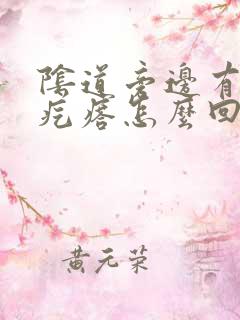 陰道旁邊有
疙瘩怎麼回
黄元荣